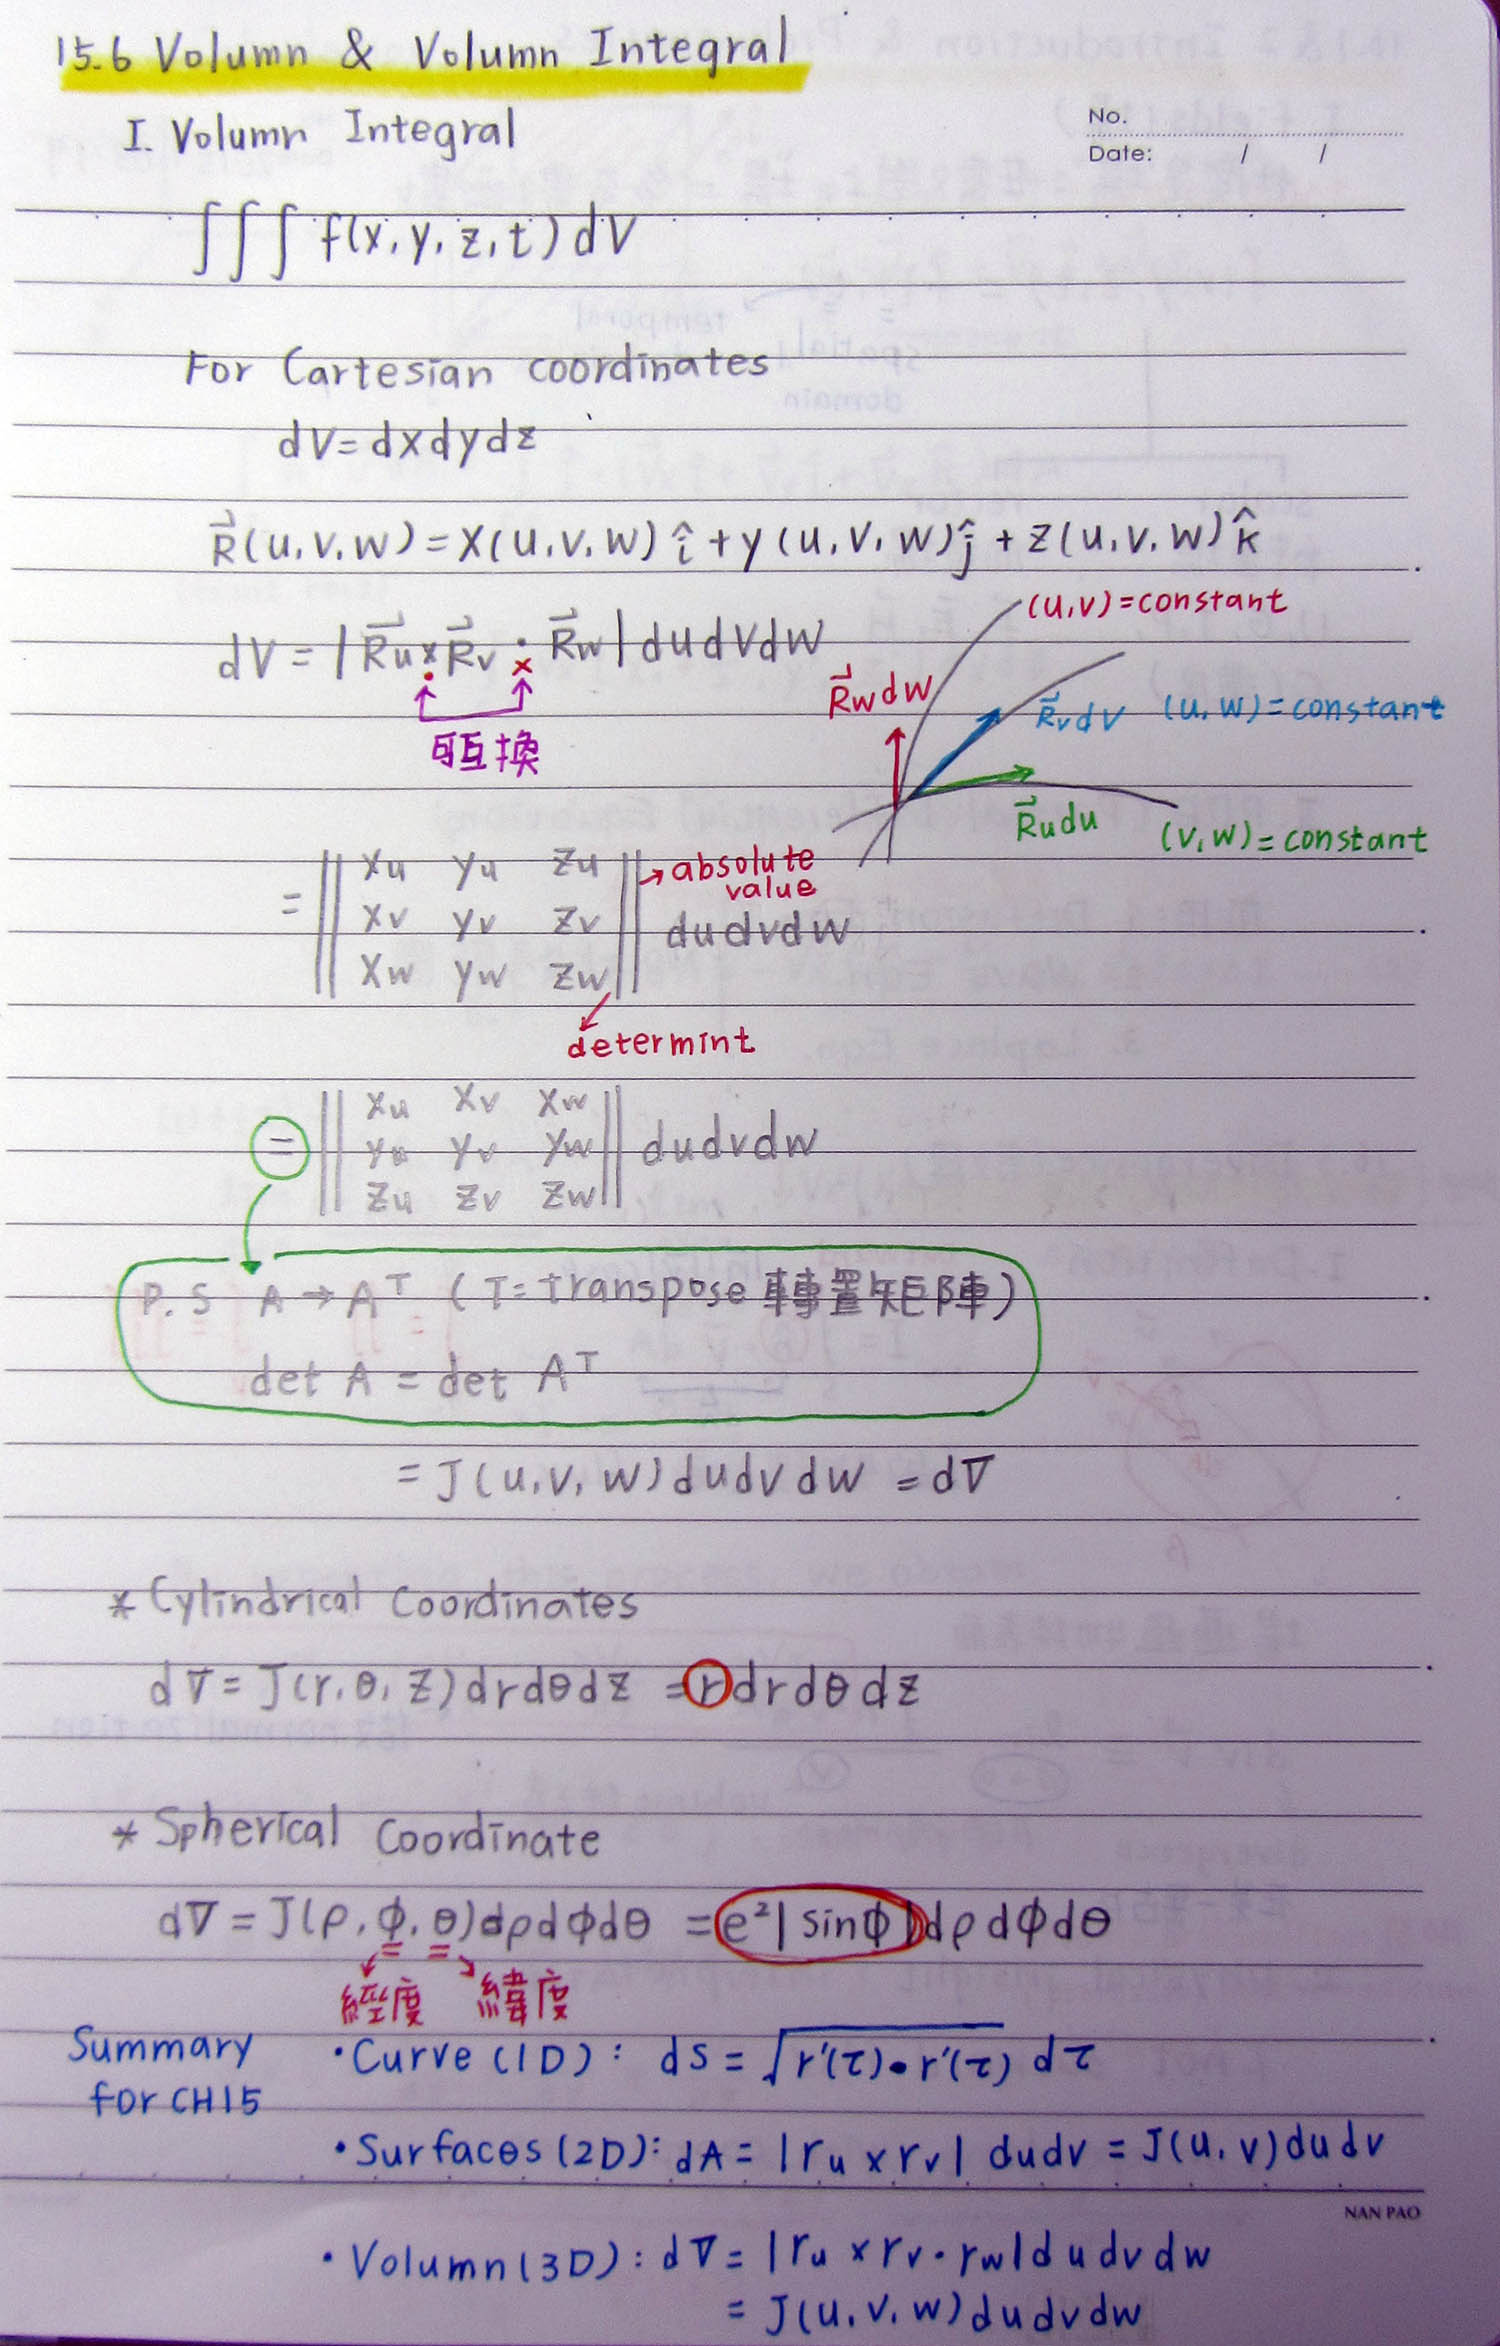 15.6 Volumn & Volumn Integral
I. Volumn Integral
No.
Date: / /
∫∫∫ f(x, y, z, t) dV
For Cartesian coordinates
dV = dxdydz
R⃗(u, v, w) = x(u, v, w) î + y(u, v, w) ĵ + z(u, v, w) k̂
(u, v) = constant
dV = | R⃗u × R⃗v · R⃗w | du dv dw
· ×
可互換
R⃗w dw
R⃗v dv (u, w) = constant
R⃗u du (v, w) = constant
= || xu yu zu || → absolute value
xv yv zv
du dv dw
xw yw zw
determint
= || xu xv xw ||
yu yv yw
du dv dw
zu zv zw
P.S A → Aᵀ (T = transpose 轉置矩陣)
det A = det Aᵀ
= J(u, v, w) du dv dw = dV
* Cylindrical Coordinates
dV = J(r, θ, z) dr dθ dz = r dr dθ dz
* Spherical Coordinate
dV = J(ρ, ϕ, θ) dρ dϕ dθ = e² | sinϕ | dρ dϕ dθ
經度 緯度
Summary for CH15
• Curve (1D) : ds = √r'(τ) • r'(τ) dτ
• Surfaces (2D) : dA = | ru × rv | du dv = J(u, v) du dv
NAN PAO
• Volumn (3D) : dV = | ru × rv · rw | du dv dw
= J(u, v, w) du dv dw